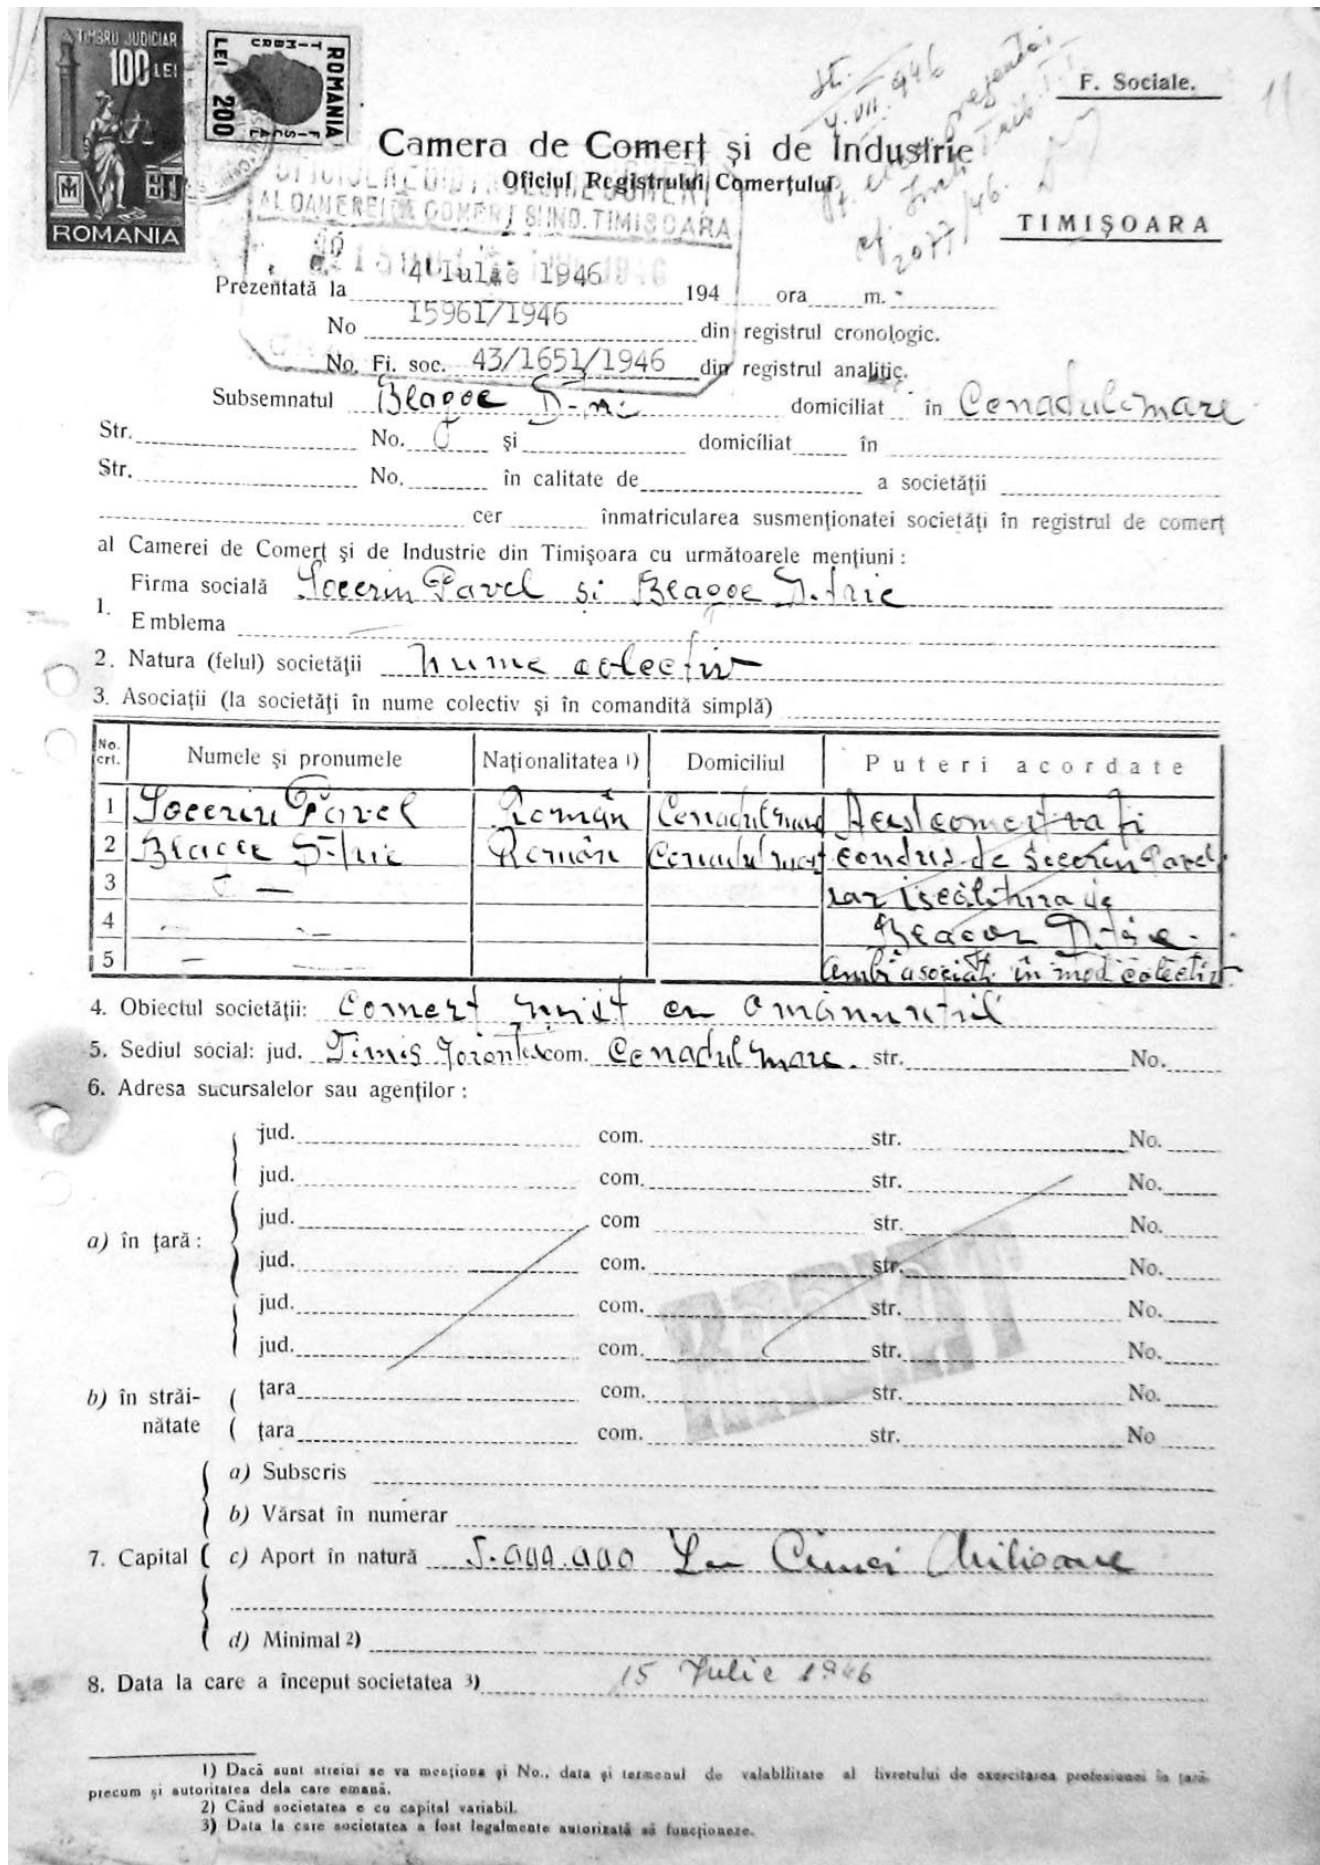 TIMBRU JUDICIAR
100 LEI
ROMANIA
ROMANIA
TIMBRU FISCAL
LEI 200
F. Sociale.
11
4.VII.946
2077/46.
Camera de Comerț și de Industrie
Oficiul Registrului Comerțului
AL CAMEREI DE COMERȚ ȘI IND. TIMIȘOARA
TIMIȘOARA
Prezentată la 4 Iulie 1946 194 ora m.
No 15961/1946 din registrul cronologic.
No. Fi. soc. 43/1651/1946 din registrul analitic.
Subsemnatul Blagoe D-mi domiciliat în Cenadul-mare
Str. No. și domiciliat în
Str. No. în calitate de a societății
cer înmatricularea susmenționatei societăți în registrul de comerț
al Camerei de Comerț și de Industrie din Timișoara cu următoarele mențiuni :
Firma socială Socerin Pavel si Blagoe
1.
Emblema
2. Natura (felul) societății nume colectiv
3. Asociații (la societăți în nume colectiv și în comandită simplă)
No. crt. Numele și pronumele Naționalitatea 1) Domiciliul Puteri acordate
1 Socerin Pavel Român Cenadul mare Acest comert va fi
2 Blagoe Român Cenadul mare condus de Socerin Pavel
3 iar iscălitura de
4 Blagoe
5 ambi asociați în mod colectiv
4. Obiectul societății: Comerț mixt cu amănuntul
5. Sediul social: jud. Timis Torontal com. Cenadul mare. str. No.
6. Adresa sucursalelor sau agenților :
jud. com. str. No.
jud. com. str. No.
jud. com str. No.
a) în țară :
jud. com. str. No.
jud. com. str. No.
jud. com. str. No.
b) în străi-
nătate
țara com. str. No.
țara com. str. No
a) Subscris
b) Vărsat în numerar
7. Capital c) Aport în natură 5.000.000 Lei Cinci Milioane
d) Minimal 2)
8. Data la care a început societatea 3) 15 Iulie 1946
1) Dacă sunt streini se va menționa și No., data și termenul de valabilitate al livretului de exercitarea profesiunei în țară
precum și autoritatea dela care emană.
2) Când societatea e cu capital variabil.
3) Data la care societatea a fost legalmente autorizată să funcționeze.